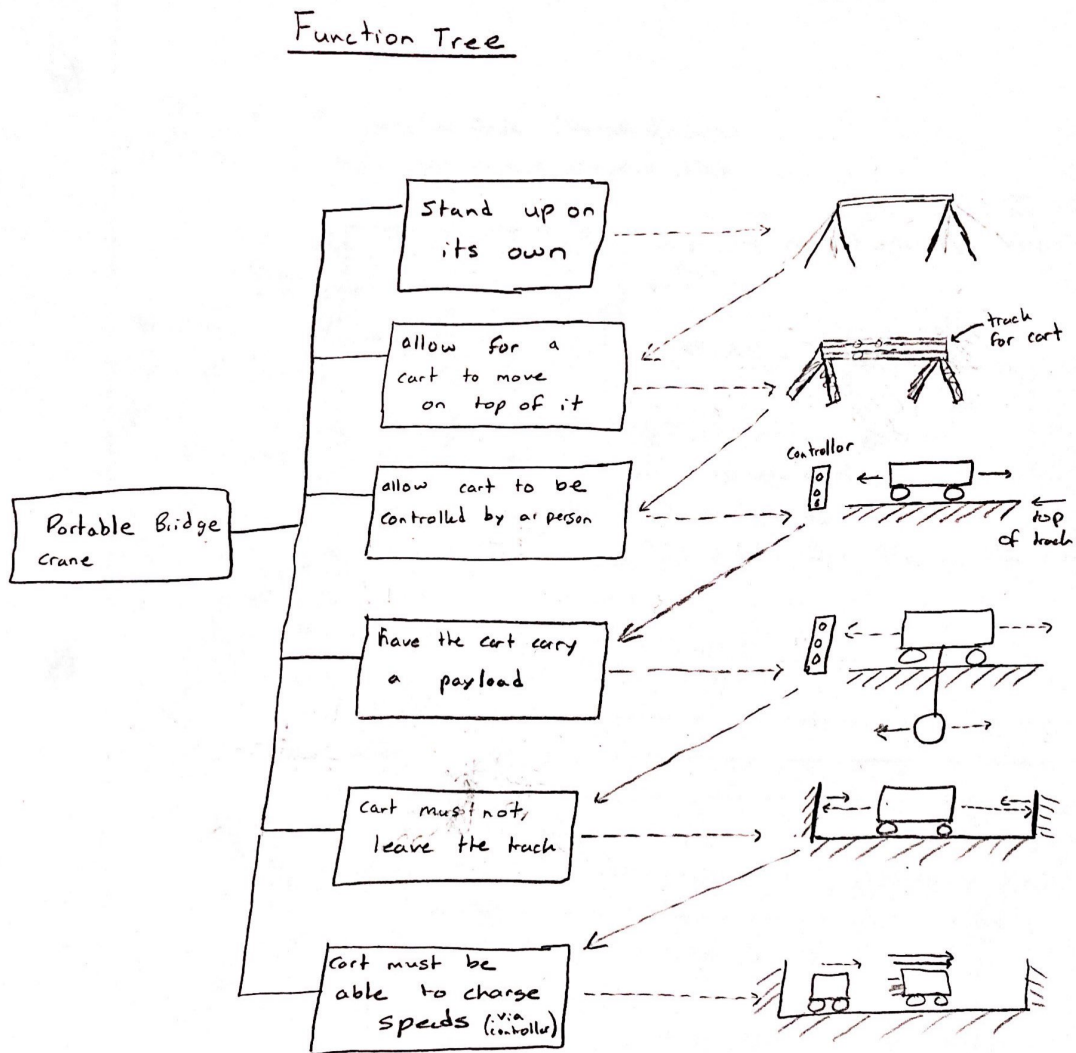 Function Tree
Stand up on
its own
allow for a
cart to move
on top of it
track
for cart
allow cart to be
controlled by a person
Controllor
top
of track
Portable Bridge
crane
have the cart carry
a payload
cart must not,
leave the track
cart must be
able to change
speeds (via
controller)